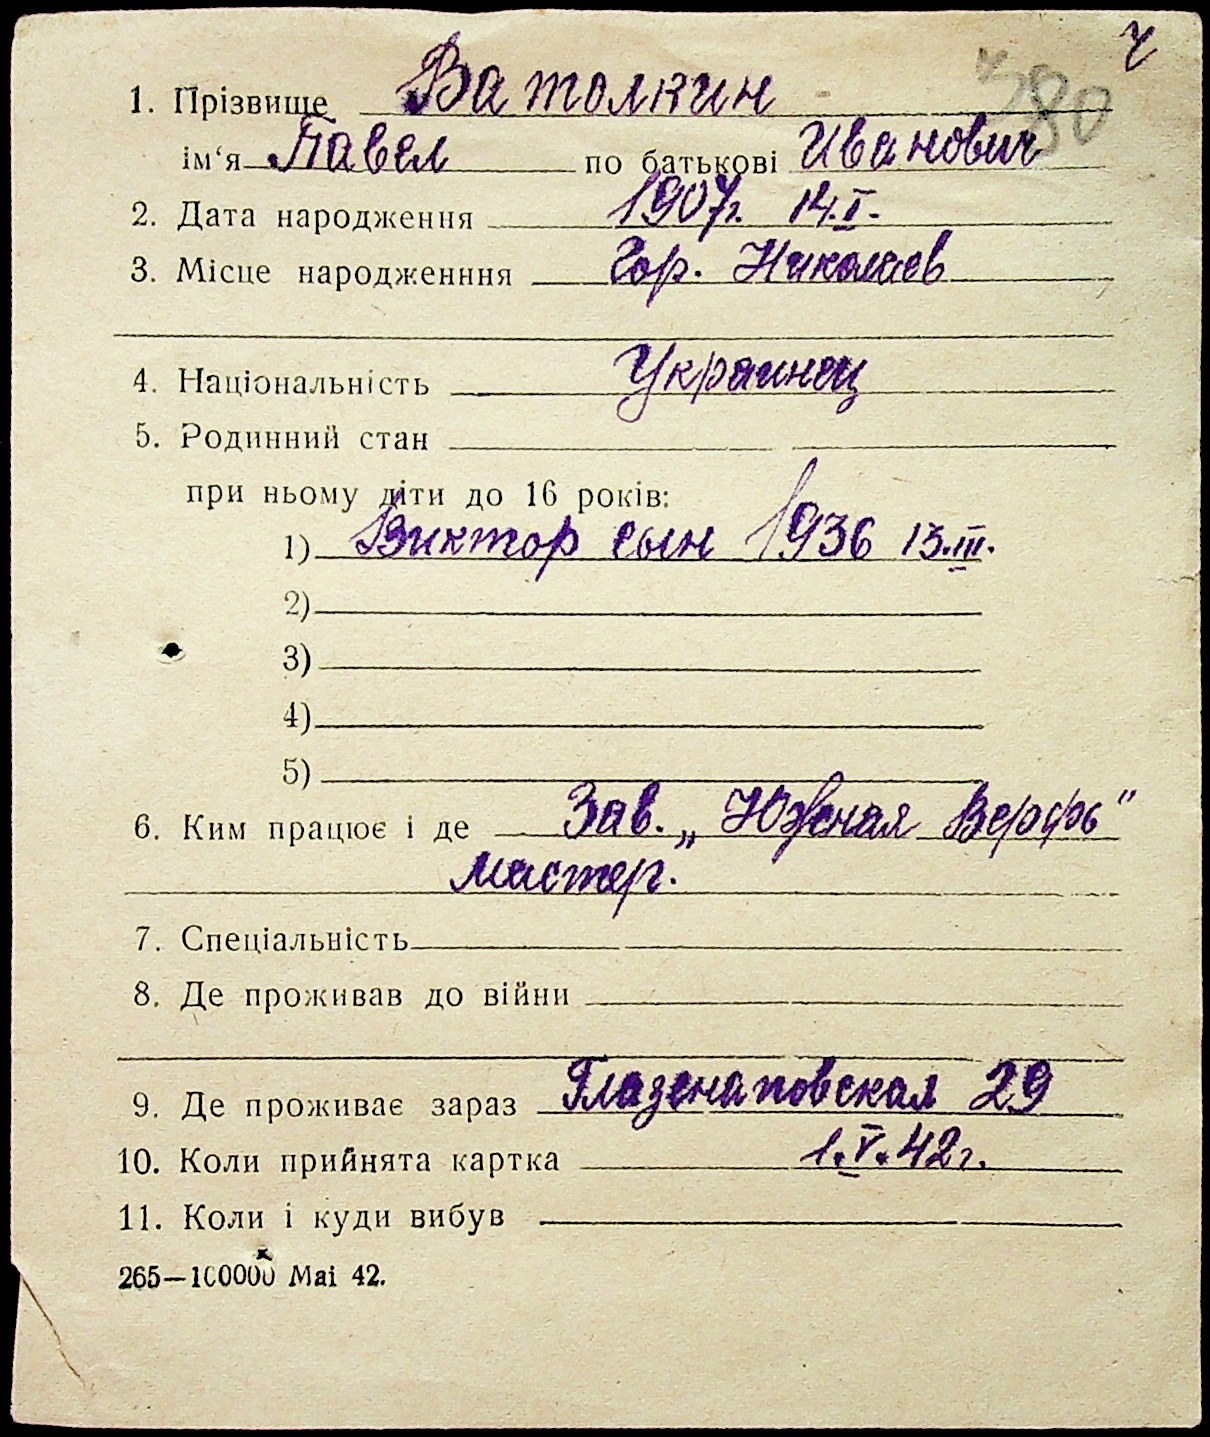 ч
380
1. Прізвище Ватолкин
ім‘я Павел по батькові Иванович
2. Дата народження 1907г. 14.I.
3. Місце народженння Гор. Николаев
4. Національність Украинец
5. Родинний стан
при ньому діти до 16 років:
1) Виктор сын 1936 13.III.
2)
3)
4)
5)
6. Ким працює і де Зав. „Южная Верфь"
мастер.
7. Спеціальність
8. Де проживав до війни
9. Де проживає зараз Глазенаповская 29
10. Коли прийнята картка 1.V.42г.
11. Коли і куди вибув
265—100000 Mai 42.